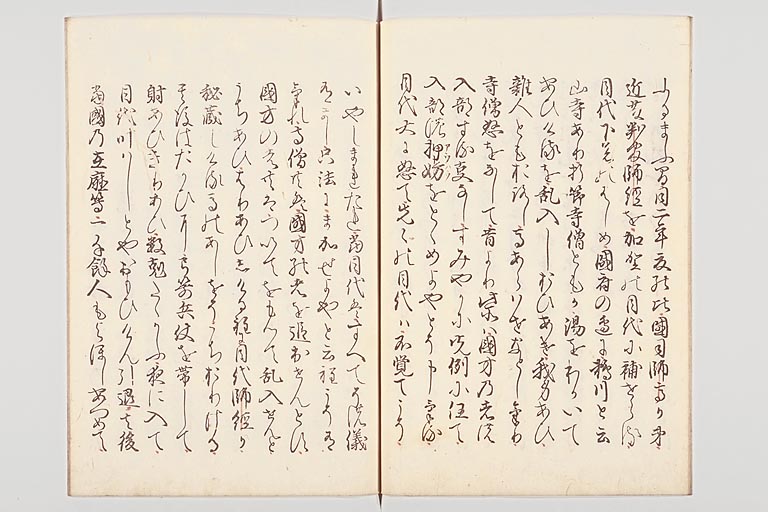 ふるまふ間同二年夏の比國司師高か弟
近藤判官師經を加賀の目代に補せらる
目代下着のはしめ國府の邊に鵜川と云
山寺あり折節寺僧ともか湯をわかいて
あひけるを乱入しおひあけ我身あひ
雑人ともおろし馬あらはせなとしけり
寺僧怒をなして昔より此所ハ國方乃者の
入部する事なしすみやかに先例に任て
入部の押妨をとゝめよやとそ申ける
目代大に怒て先々の目代ハ不覚てこそ
いやしまれたれ當目代はすへて其儀
有まし只法にまかせよやと云程こそ有
けれ寺僧共は國方の者を追出さんとす
國方の者共はついてをもつて乱入せんと
うちあひはりあひしける程に目代師經か
秘蔵しける馬の足をそうちおりける
其後はたかひに弓箭兵仗を帯して
射あひきりあひ数剋たゝかふ夜に入て
目代叶はしとやおもひけん引退其後
當國乃在廰等二千餘人もよほしあつめて